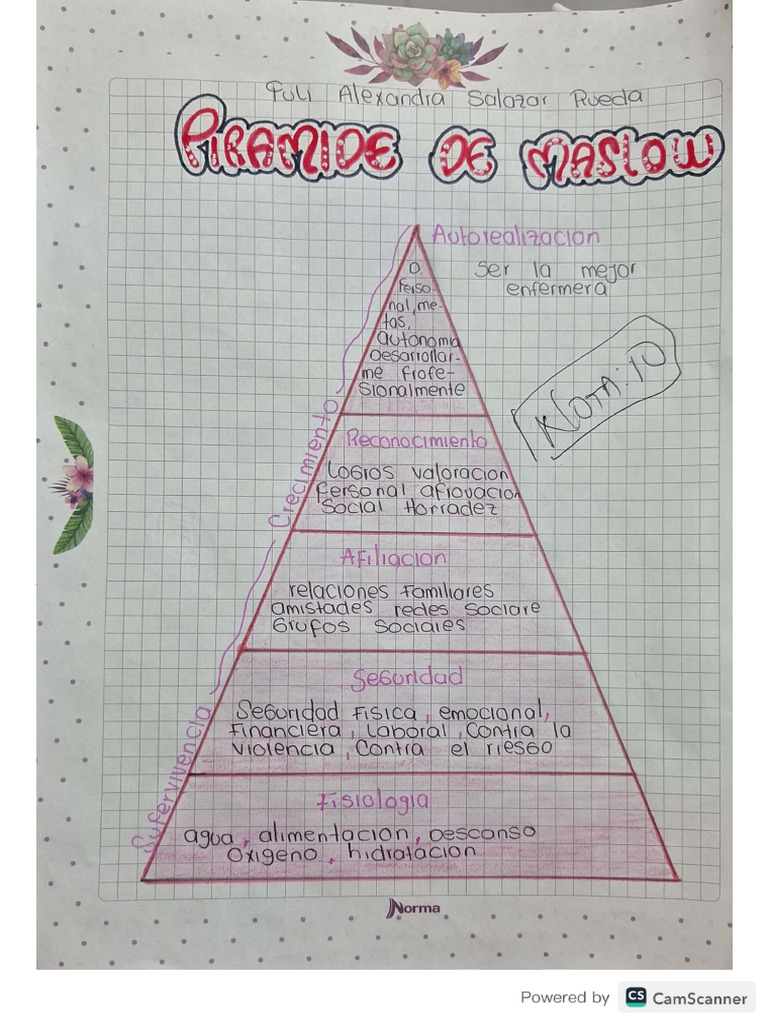 Yuli Alexandra Salazar Rueda
PIRAMIDE DE MASLOW
Autorealizacion
Ser la mejor
enfermera
D.
Perso-
nal, me-
tas,
autonomia
Desarrollar-
me Profe-
sionalmente
NOTA: 10
Crecimiento
Reconocimiento
Logros valoracion
Personal, aprovacion
Social Honradez
Afiliacion
relaciones Familiares
amistades redes Sociare
Grupos Sociales
Seguridad
Seguridad Fisica, emocional,
Financiera, Laboral, Contra la
violencia, Contra el riesgo
Supervivencia
Fisiologia
agua, alimentacion, Desconso
Oxigeno, hidratacion
Norma
Powered by CS CamScanner